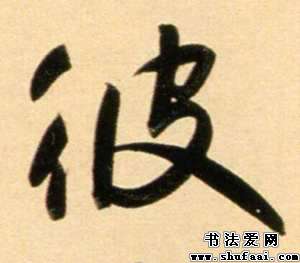 彼
书法爱网
www.shufaai.com